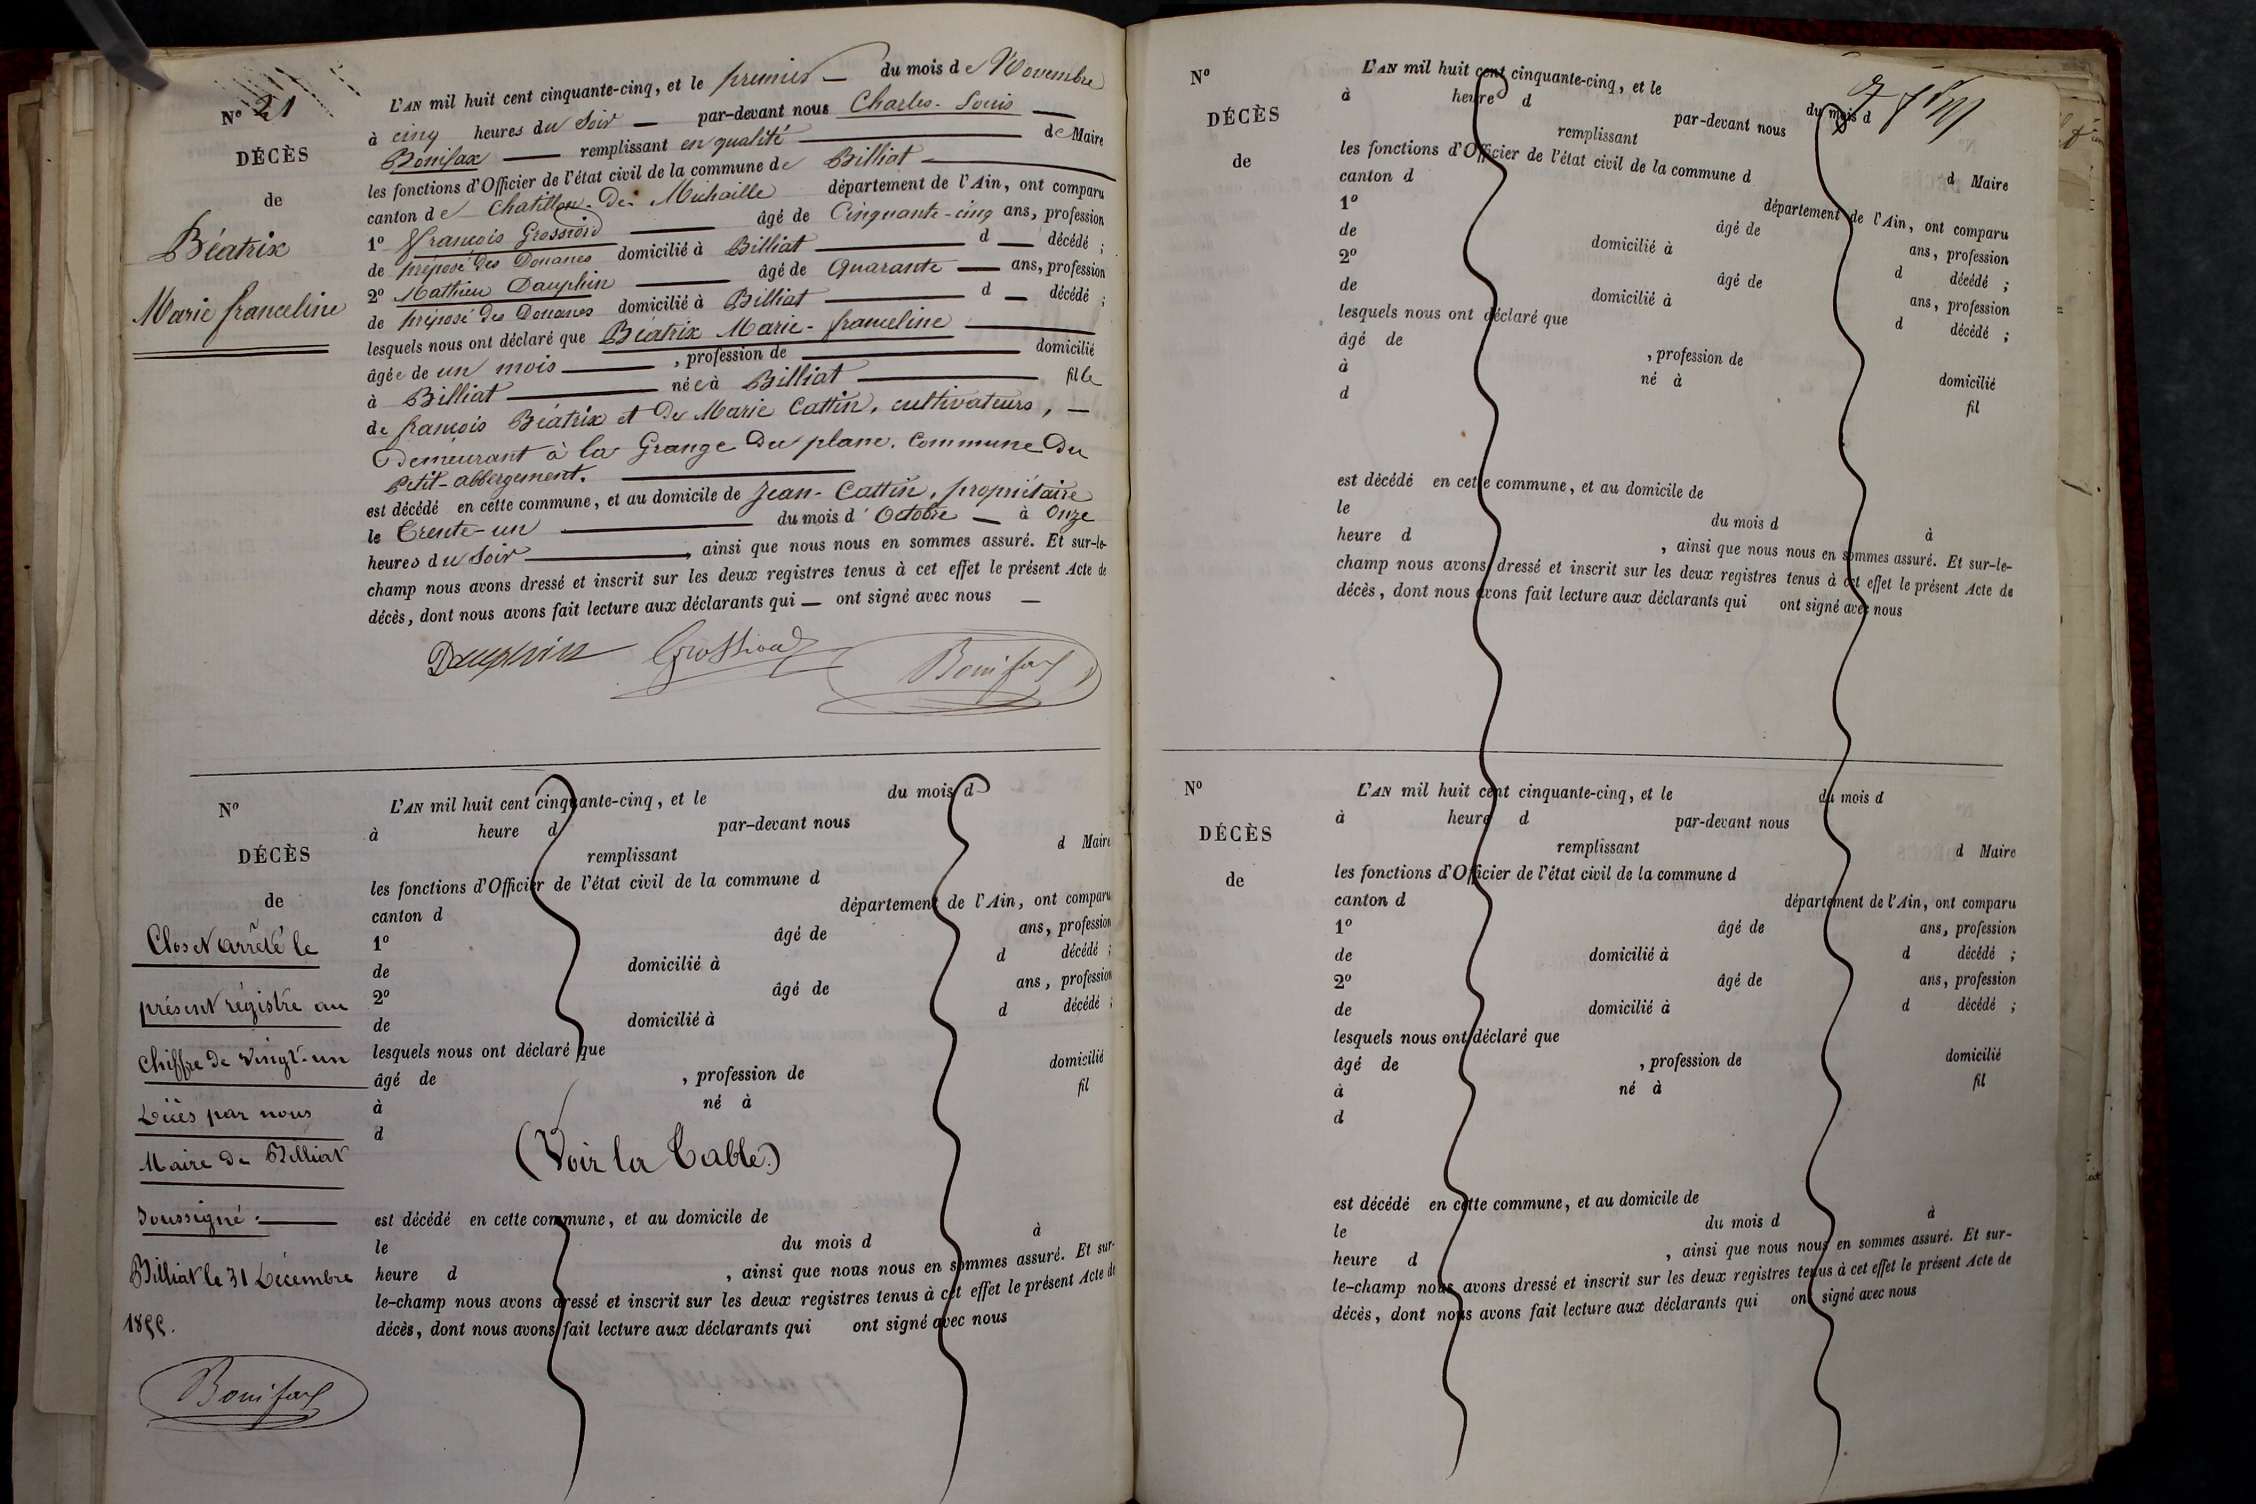 Nº 21
DÉCÈS
de
Béatrix
Marie franceline
L'AN mil huit cent cinquante-cinq, et le premier — du mois de Novembre
à cinq heures du Soir — par-devant nous Charles-Louis —
Bonifax — remplissant en qualité — de Maire
les fonctions d'Officier de l'état civil de la commune de Billiat —
canton de Chatillon-De-Michaille département de l'Ain, ont comparu
1º François Grossiord — âgé de Cinquante-cinq ans, profession
de préposé des Douanes domicilié à Billiat — d — décédé ;
2º Mathieu Dauphin — âgé de Quarante — ans, profession
de préposé des Douanes domicilié à Billiat — d — décédé ;
lesquels nous ont déclaré que Béatrix Marie-franceline —
âgée de un mois — , profession de — domicilié
à Billiat — née à Billiat — fille
de françois Béatrix et De Marie Cattin, cultivateurs, —
Demeurant à la Grange Du plane, Commune Du
Petit-abbergement. —
est décédé en cette commune, et au domicile de Jean-Cattin, propriétaire
le Trente-un — du mois d'Octobre — à Onze
heures du Soir — , ainsi que nous nous en sommes assuré. Et sur-le-
champ nous avons dressé et inscrit sur les deux registres tenus à cet effet le présent Acte de
décès, dont nous avons fait lecture aux déclarants qui — ont signé avec nous —
Dauphin Grossiord Bonifax
Nº
DÉCÈS
de
Clos et arrêté le
présent régistre au
Chiffre de vingt-un
Décès par nous
Maire de Billiat
Soussigné. —
Billiat le 31 Décembre
1855.
Bonifax
L'AN mil huit cent cinquante-cinq, et le du mois d
à heure d par-devant nous
remplissant d Maire
les fonctions d'Officier de l'état civil de la commune d
canton d département de l'Ain, ont comparu
1º âgé de ans, profession
de domicilié à d décédé ;
2º âgé de ans, profession
de domicilié à d décédé ;
lesquels nous ont déclaré que
âgé de , profession de domicilié
à né à fil
d
(Voir la Table)
est décédé en cette commune, et au domicile de
le du mois d à
heure d , ainsi que nous nous en sommes assuré. Et sur-
le-champ nous avons dressé et inscrit sur les deux registres tenus à cet effet le présent Acte de
décès, dont nous avons fait lecture aux déclarants qui ont signé avec nous
Nº
DÉCÈS
de
L'AN mil huit cent cinquante-cinq, et le du mois d
à heure d par-devant nous
remplissant d Maire
les fonctions d'Officier de l'état civil de la commune d
canton d département de l'Ain, ont comparu
1º âgé de ans, profession
de domicilié à d décédé ;
2º âgé de ans, profession
de domicilié à d décédé ;
lesquels nous ont déclaré que
âgé de , profession de domicilié
à né à fil
d
est décédé en cette commune, et au domicile de
le du mois d à
heure d , ainsi que nous nous en sommes assuré. Et sur-le-
champ nous avons dressé et inscrit sur les deux registres tenus à cet effet le présent Acte de
décès, dont nous avons fait lecture aux déclarants qui ont signé avec nous
Nº
DÉCÈS
de
L'AN mil huit cent cinquante-cinq, et le du mois d
à heure d par-devant nous
remplissant d Maire
les fonctions d'Officier de l'état civil de la commune d
canton d département de l'Ain, ont comparu
1º âgé de ans, profession
de domicilié à d décédé ;
2º âgé de ans, profession
de domicilié à d décédé ;
lesquels nous ont déclaré que
âgé de , profession de domicilié
à né à fil
d
est décédé en cette commune, et au domicile de
le du mois d à
heure d , ainsi que nous nous en sommes assuré. Et sur-
le-champ nous avons dressé et inscrit sur les deux registres tenus à cet effet le présent Acte de
décès, dont nous avons fait lecture aux déclarants qui ont signé avec nous